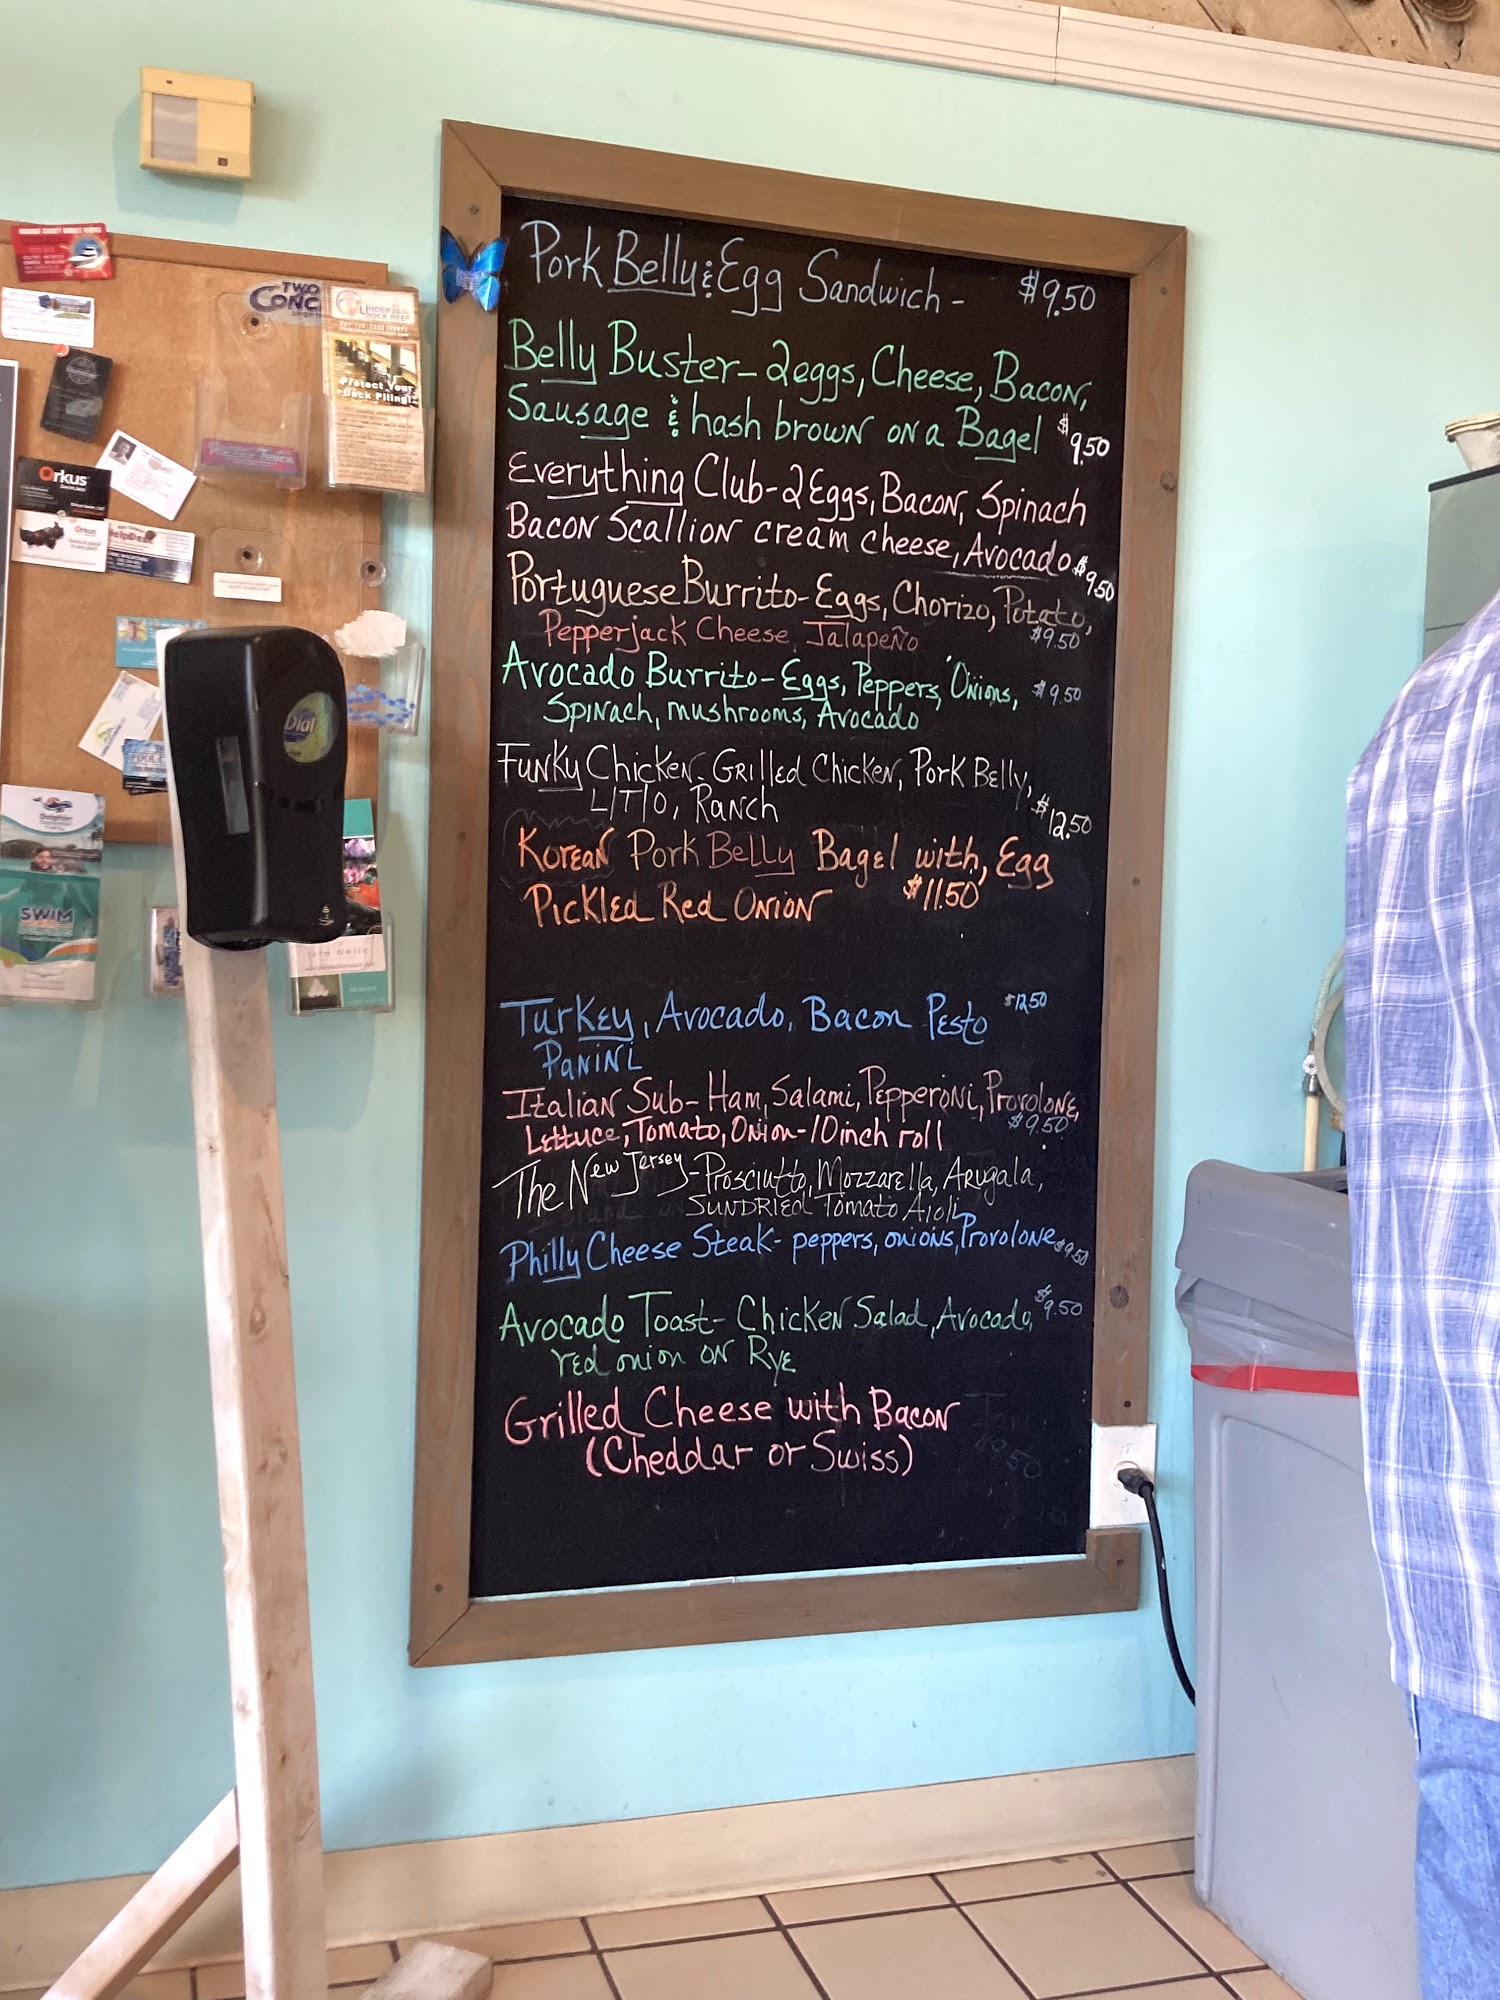 Pork Belly & Egg Sandwich - $9.50
Belly Buster - 2eggs, Cheese, Bacon,
Sausage & hash brown on a Bagel $9.50
Everything Club - 2 Eggs, Bacon, Spinach
Bacon Scallion cream cheese, Avocado $9.50
Portuguese Burrito - Eggs, Chorizo, Potato,
Pepperjack Cheese, Jalapeño $9.50
Avocado Burrito - Eggs, Peppers, Onions, $9.50
Spinach, mushrooms, Avocado
Funky Chicken - Grilled Chicken, Pork Belly,
L/T/O, Ranch $12.50
Korean Pork Belly Bagel with, Egg
Pickled Red Onion $11.50
Turkey, Avocado, Bacon Pesto $12.50
Panini
Italian Sub - Ham, Salami, Pepperoni, Provolone,
Lettuce, Tomato, Onion - 10 inch roll $9.50
The New Jersey - Prosciutto, Mozzarella, Arugala,
Sundried Tomato Aioli
Philly Cheese Steak - peppers, onions, Provolone $9.50
Avocado Toast - Chicken Salad, Avocado, $9.50
red onion on Rye
Grilled Cheese with Bacon
(Cheddar or Swiss)
TWO
CONC
UNDER
DOCK REEF
Protect Your
Dock Piling!
Orkus
Orkus
HelpDesk
Dial
Dolphin
SWIM